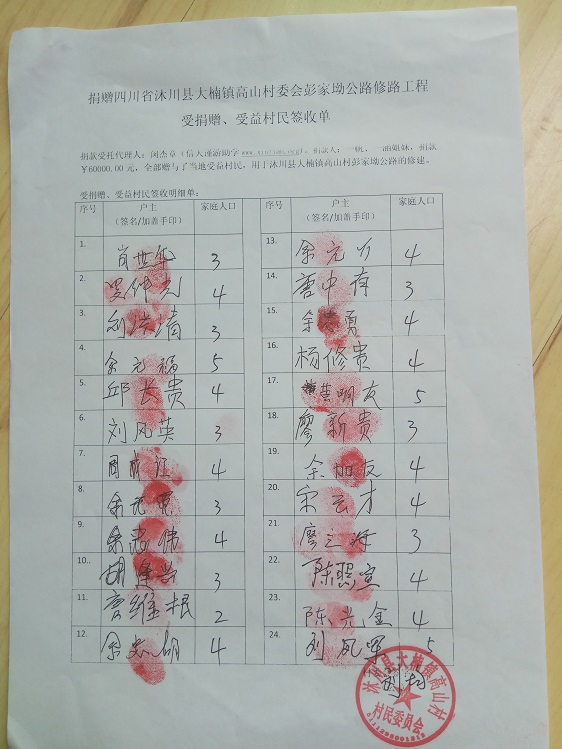 捐赠四川省沐川县大楠镇高山村委会彭家坳公路修路工程
受捐赠、受益村民签收单
捐款受托代理人：闵杰章（信天谨游助学 www.xintianj.org）。捐款人： 帆、 姐妹，捐款
￥60000.00元，全部赠与了当地受益村民，用于沐川县大楠镇高山村彭家坳公路的修建。
受捐赠、受益村民签收明细单：
序号 户主 家庭人口 序号 户主 家庭人口
（签名/加盖手印） （签名/加盖手印）
1. 肖世华 3 13. 余元 4
2. 4 14. 唐中有 3
3. 3 15. 勇 4
4. 余元福 5 16. 杨修贵 4
5. 邱长贵 4 17. 黄明友 5
6. 刘凤英 3 18. 廖新贵 3
7. 周 江 4 19. 余加友 4
8. 余 3 20. 宋云才 4
9. 余志伟 4 21. 廖 海 3
10.. 胡 3 22. 陈照宣 4
11. 唐维根 2 23. 陈光金 4
12. 余 4 24. 刘凤军 5
沐川县大楠镇高山村
村民委员会